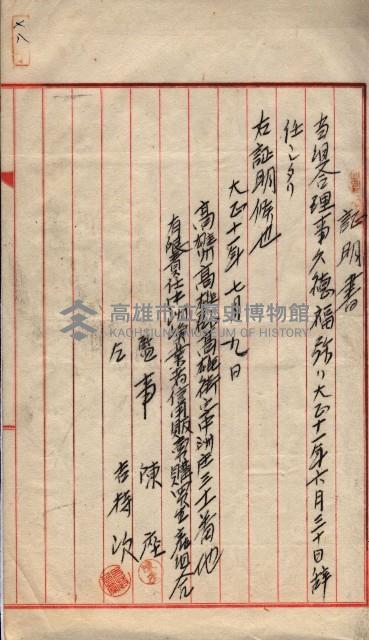 証明書
当組合理事久徳福弥ハ大正十一年六月三十日辞
任シタリ
右証明候也
大正十一年七月九日
高雄州高雄郡高雄街
有限責任
信用販売購買生産組合
監事 陳
吉持次
高雄市立歷史博物館
KAOHSIUNG MUSEUM OF HISTORY